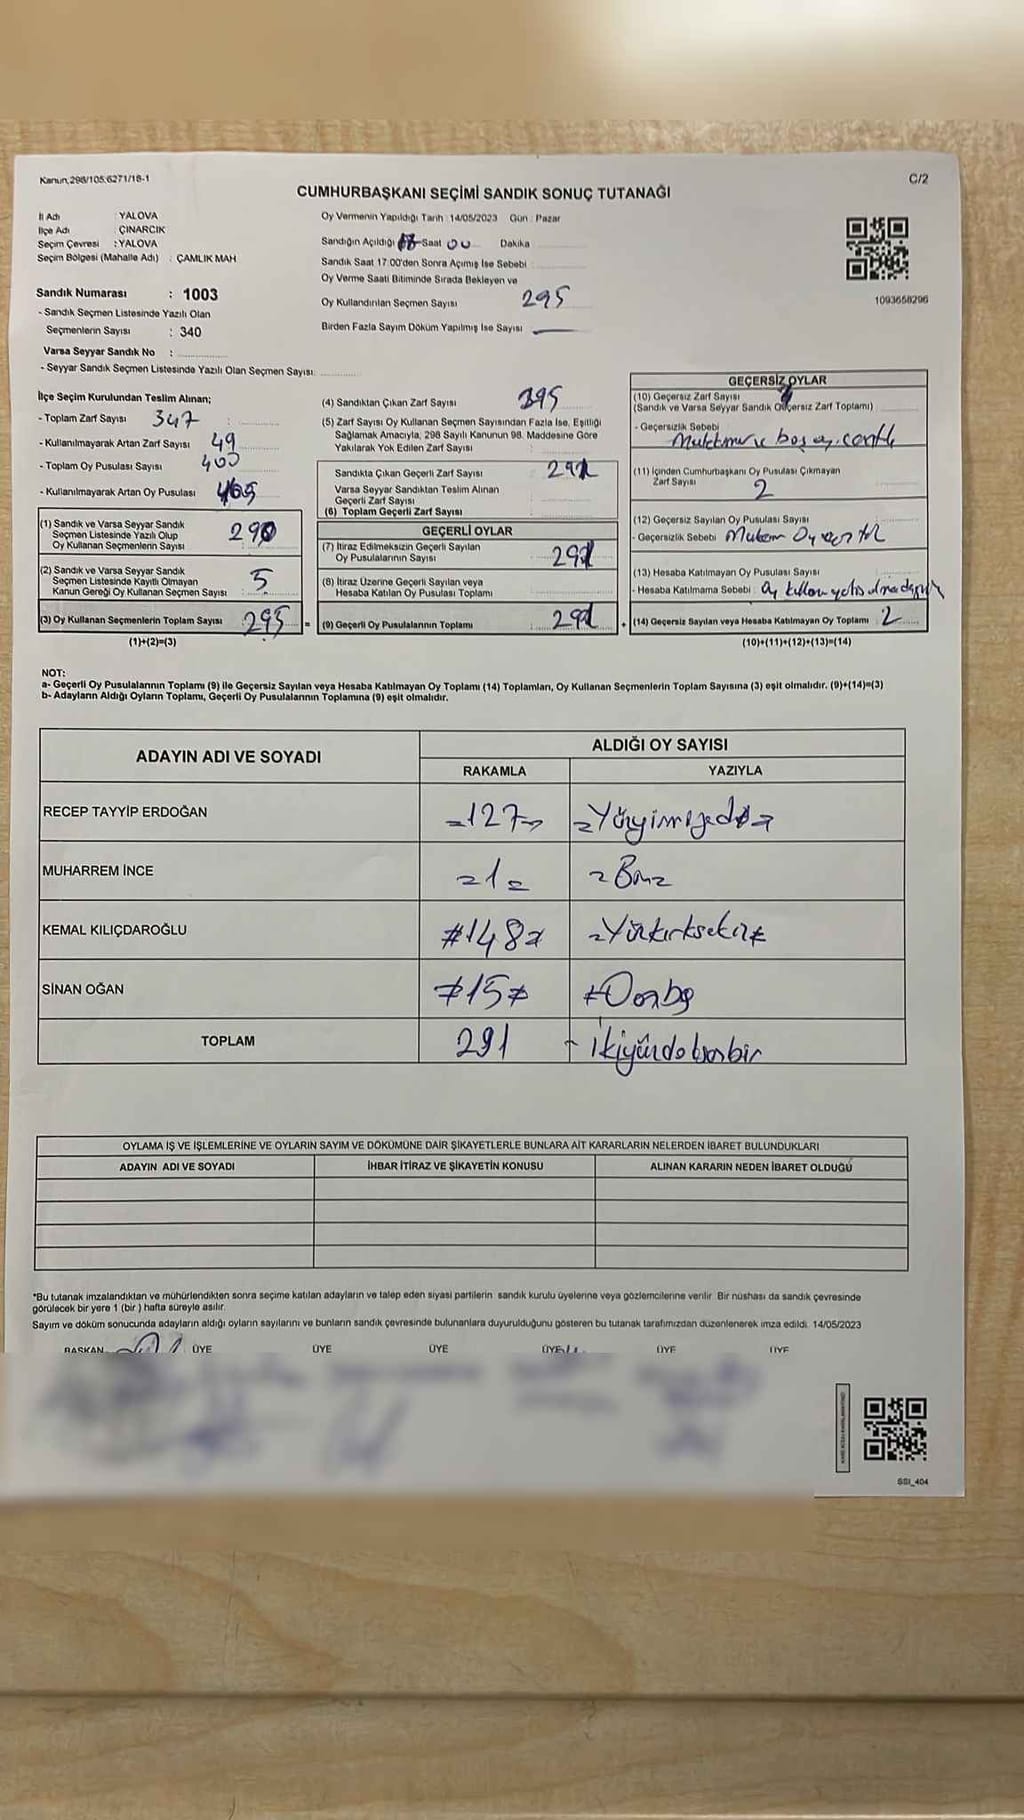 Kanun,298/105,6271/18-1
C/2
CUMHURBAŞKANI SEÇİMİ SANDIK SONUÇ TUTANAĞI
İl Adı : YALOVA
İlçe Adı : ÇINARCIK
Seçim Çevresi : YALOVA
Seçim Bölgesi (Mahalle Adı) : ÇAMLIK MAH
Sandık Numarası : 1003
- Sandık Seçmen Listesinde Yazılı Olan
Seçmenlerin Sayısı : 340
Varsa Seyyar Sandık No :
- Seyyar Sandık Seçmen Listesinde Yazılı Olan Seçmen Sayısı:
Oy Vermenin Yapıldığı Tarih : 14/05/2023 Gün : Pazar
Sandığın Açıldığı Saat 00 Dakika
Sandık Saat 17:00'den Sonra Açımış İse Sebebi :
Oy Verme Saati Bitiminde Sırada Bekleyen ve
Oy Kullandırılan Seçmen Sayısı 295
Birden Fazla Sayım Döküm Yapılmış İse Sayısı
1093658296
İlçe Seçim Kurulundan Teslim Alınan;
- Toplam Zarf Sayısı 347
- Kullanılmayarak Artan Zarf Sayısı 49
- Toplam Oy Pusulası Sayısı 400
- Kullanılmayarak Artan Oy Pusulası
(1) Sandık ve Varsa Seyyar Sandık
Seçmen Listesinde Yazılı Olup
Oy Kullanan Seçmenlerin Sayısı 290
(2) Sandık ve Varsa Seyyar Sandık
Seçmen Listesinde Kayıtlı Olmayan
Kanun Gereği Oy Kullanan Seçmen Sayısı : 5
(3) Oy Kullanan Seçmenlerin Toplam Sayısı : 295 =
(1)+(2)=(3)
(4) Sandıktan Çıkan Zarf Sayısı
(5) Zarf Sayısı Oy Kullanan Seçmen Sayısından Fazla İse, Eşitliği
Sağlamak Amacıyla, 298 Sayılı Kanunun 98. Maddesine Göre
Yakılarak Yok Edilen Zarf Sayısı
Sandıkta Çıkan Geçerli Zarf Sayısı
Varsa Seyyar Sandıktan Teslim Alınan
Geçerli Zarf Sayısı
(6) Toplam Geçerli Zarf Sayısı
GEÇERLİ OYLAR
(7) İtiraz Edilmeksizin Geçerli Sayılan
Oy Pusulalarının Sayısı 291
(8) İtiraz Üzerine Geçerli Sayılan veya
Hesaba Katılan Oy Pusulası Toplamı
(9) Geçerli Oy Pusulalarının Toplamı : 291 +
GEÇERSİZ OYLAR
(10) Geçersiz Zarf Sayısı
(Sandık ve Varsa Seyyar Sandık Geçersiz Zarf Toplamı)
- Geçersizlik Sebebi
boş
(11) İçinden Cumhurbaşkanı Oy Pusulası Çıkmayan
Zarf Sayısı 2
(12) Geçersiz Sayılan Oy Pusulası Sayısı
- Geçersizlik Sebebi
(13) Hesaba Katılmayan Oy Pusulası Sayısı
- Hesaba Katılmama Sebebi : Oy
(14) Geçersiz Sayılan veya Hesaba Katılmayan Oy Toplamı : 2
(10)+(11)+(12)+(13)=(14)
NOT:
a- Geçerli Oy Pusulalarının Toplamı (9) ile Geçersiz Sayılan veya Hesaba Katılmayan Oy Toplamı (14) Toplamları, Oy Kullanan Seçmenlerin Toplam Sayısına (3) eşit olmalıdır. (9)+(14)=(3)
b- Adayların Aldığı Oyların Toplamı, Geçerli Oy Pusulalarının Toplamına (9) eşit olmalıdır.
ADAYIN ADI VE SOYADI ALDIĞI OY SAYISI
RAKAMLA YAZIYLA
RECEP TAYYİP ERDOĞAN =127= =Yüzyirmiyedi=
MUHARREM İNCE =1= =Bir=
KEMAL KILIÇDAROĞLU #148= =Yüzkırksekiz≠
SİNAN OĞAN ≠15≠ ≠Onbeş
TOPLAM 291 - ikiyüzdoksanbir
OYLAMA İŞ VE İŞLEMLERİNE VE OYLARIN SAYIM VE DÖKÜMÜNE DAİR ŞİKAYETLERLE BUNLARA AİT KARARLARIN NELERDEN İBARET BULUNDUKLARI
ADAYIN ADI VE SOYADI İHBAR İTİRAZ VE ŞİKAYETİN KONUSU ALINAN KARARIN NEDEN İBARET OLDUĞU
*Bu tutanak imzalandıktan ve mühürlendikten sonra seçime katılan adayların ve talep eden siyasi partilerin sandık kurulu üyelerine veya gözlemcilerine verilir. Bir nüshası da sandık çevresinde
görülecek bir yere 1 (bir ) hafta süreyle asılır.
Sayım ve döküm sonucunda adayların aldığı oyların sayılarını ve bunların sandık çevresinde bulunanlara duyurulduğunu gösteren bu tutanak tarafımızdan düzenlenerek imza edildi. 14/05/2023
BAŞKAN ÜYE ÜYE ÜYE ÜYE ÜYE ÜYE
SSI_404